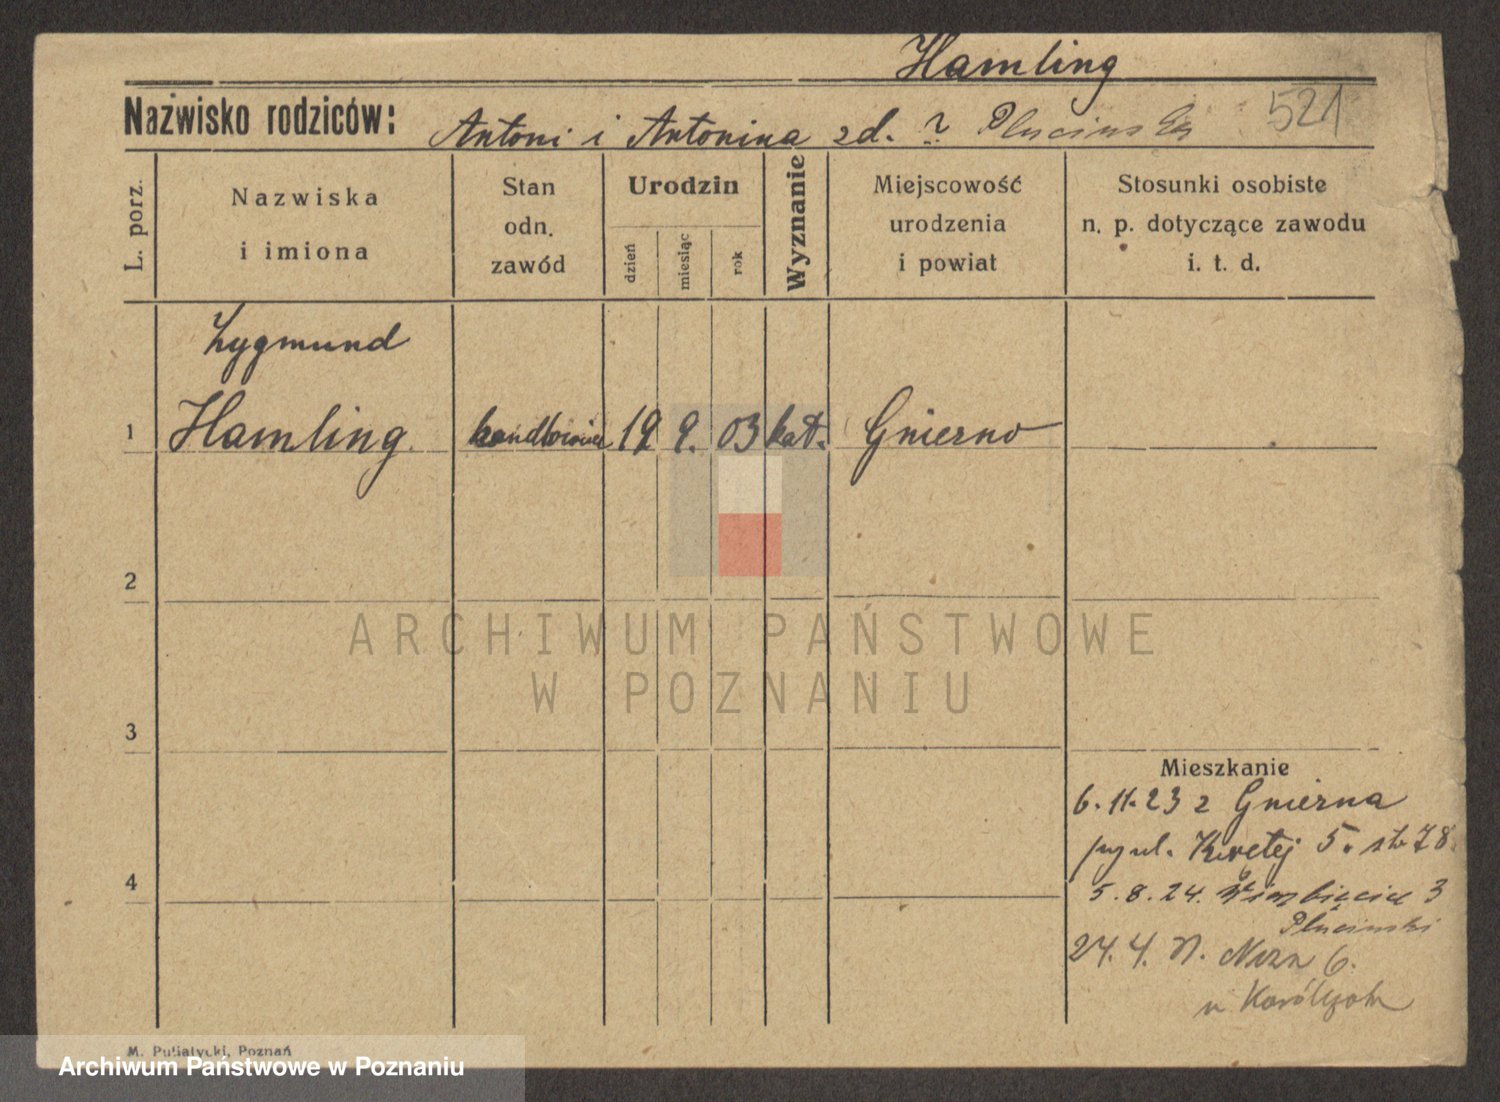 Hamling
Nazwisko rodziców: Antoni i Antonina zd. ? Plucinska 521
L. porz.
Nazwiska i imiona
Stan odn. zawód
Urodzin
dzień
miesiąc
rok
Wyznanie
Miejscowość urodzenia i powiat
Stosunki osobiste n. p. dotyczące zawodu i. t. d.
Zygmund
1 Hamling handlowiec 19 9. 03 kat. Gnierno
2
ARCHIWUM PAŃSTWOWE
W POZNANIU
3
Mieszkanie
6.11.23 z Gnierna
5. 78
4
5.8.24. 3
Plucinski
24.4. 6.
u
M. Pujiatycki, Poznań
Archiwum Państwowe w Poznaniu